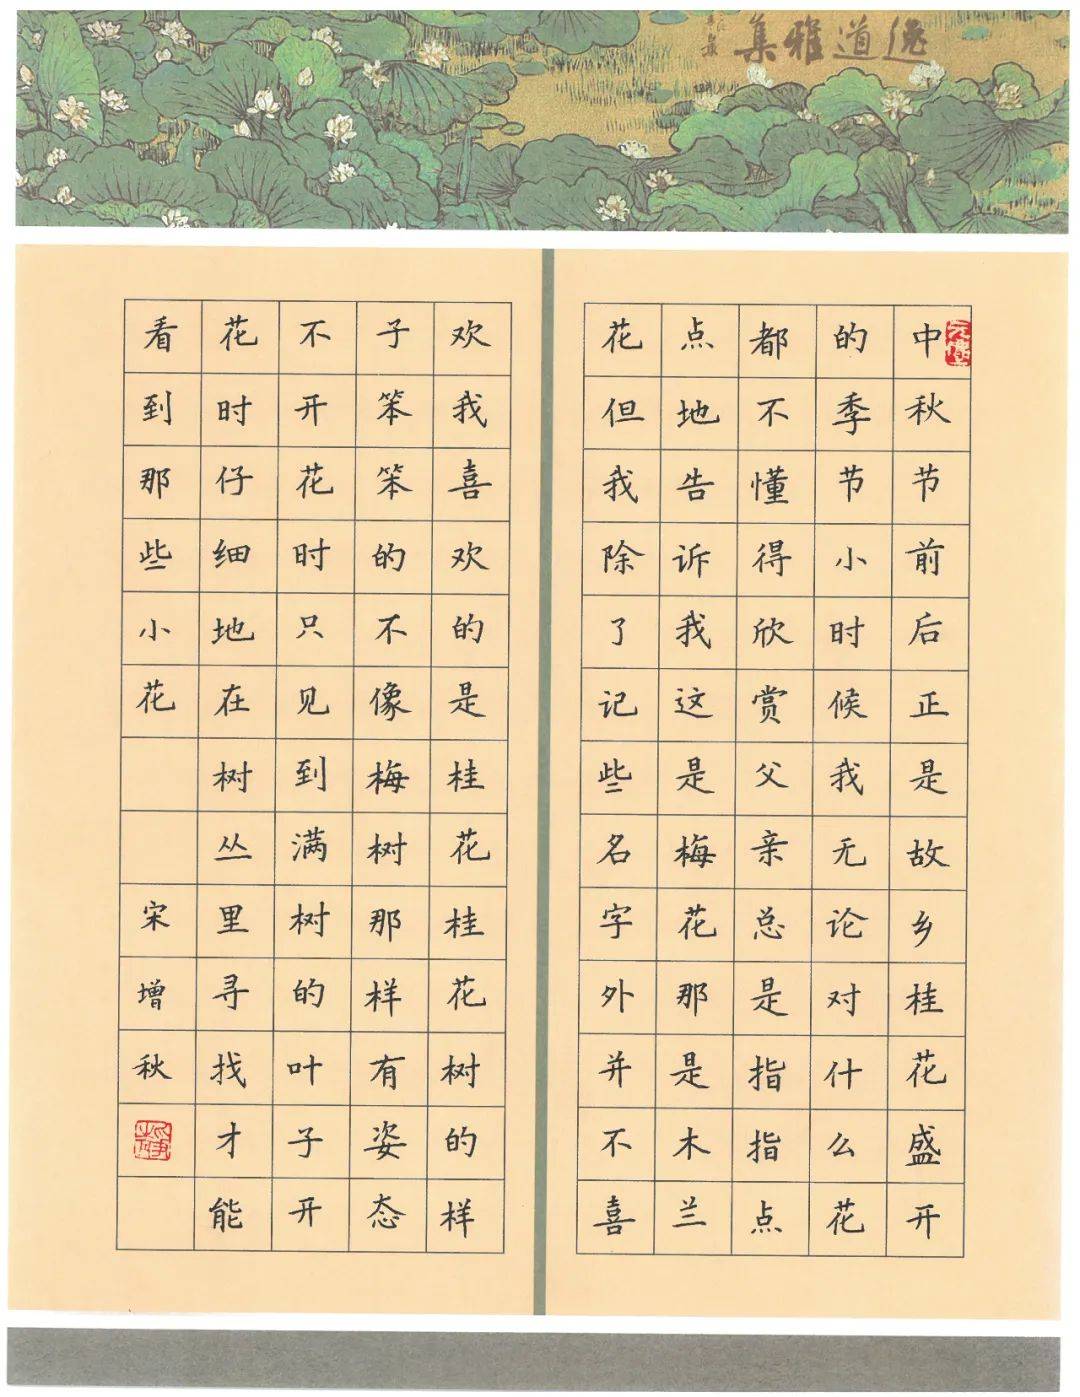 逸道雅集
中秋节前后正是故乡桂花盛开
的季节小时候我无论对什么花
都不懂得欣赏父亲总是指指点
点地告诉我这是梅花那是木兰
花但我除了记些名字外并不喜
欢我喜欢的是桂花桂花树的样
子笨笨的不像梅树那样有姿态
不开花时只见到满树的叶子开
花时仔细地在树丛里寻找才能
看到那些小花
宋增秋